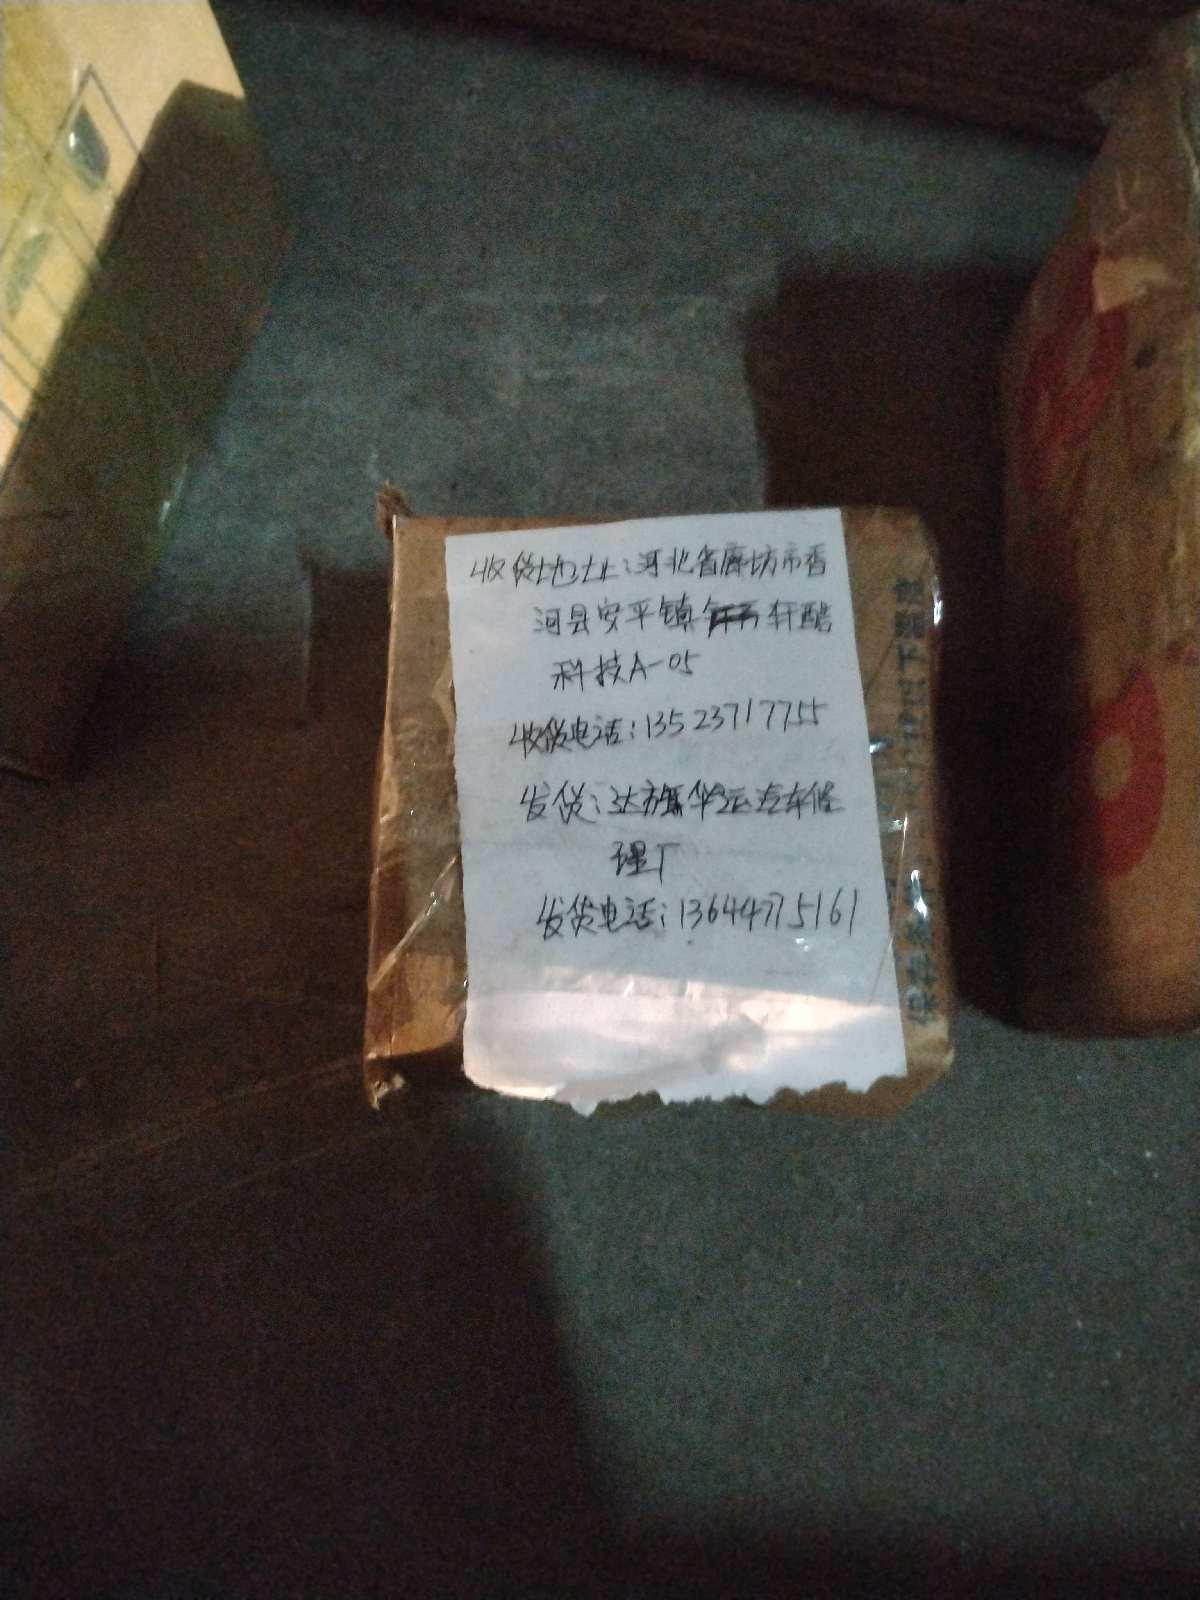 收货地址:河北省廊坊市香
河县安平镇轩酷
科技A-05
收货电话:13523717755
发货:达旗华运汽车修
理厂
发货电话:13644775161